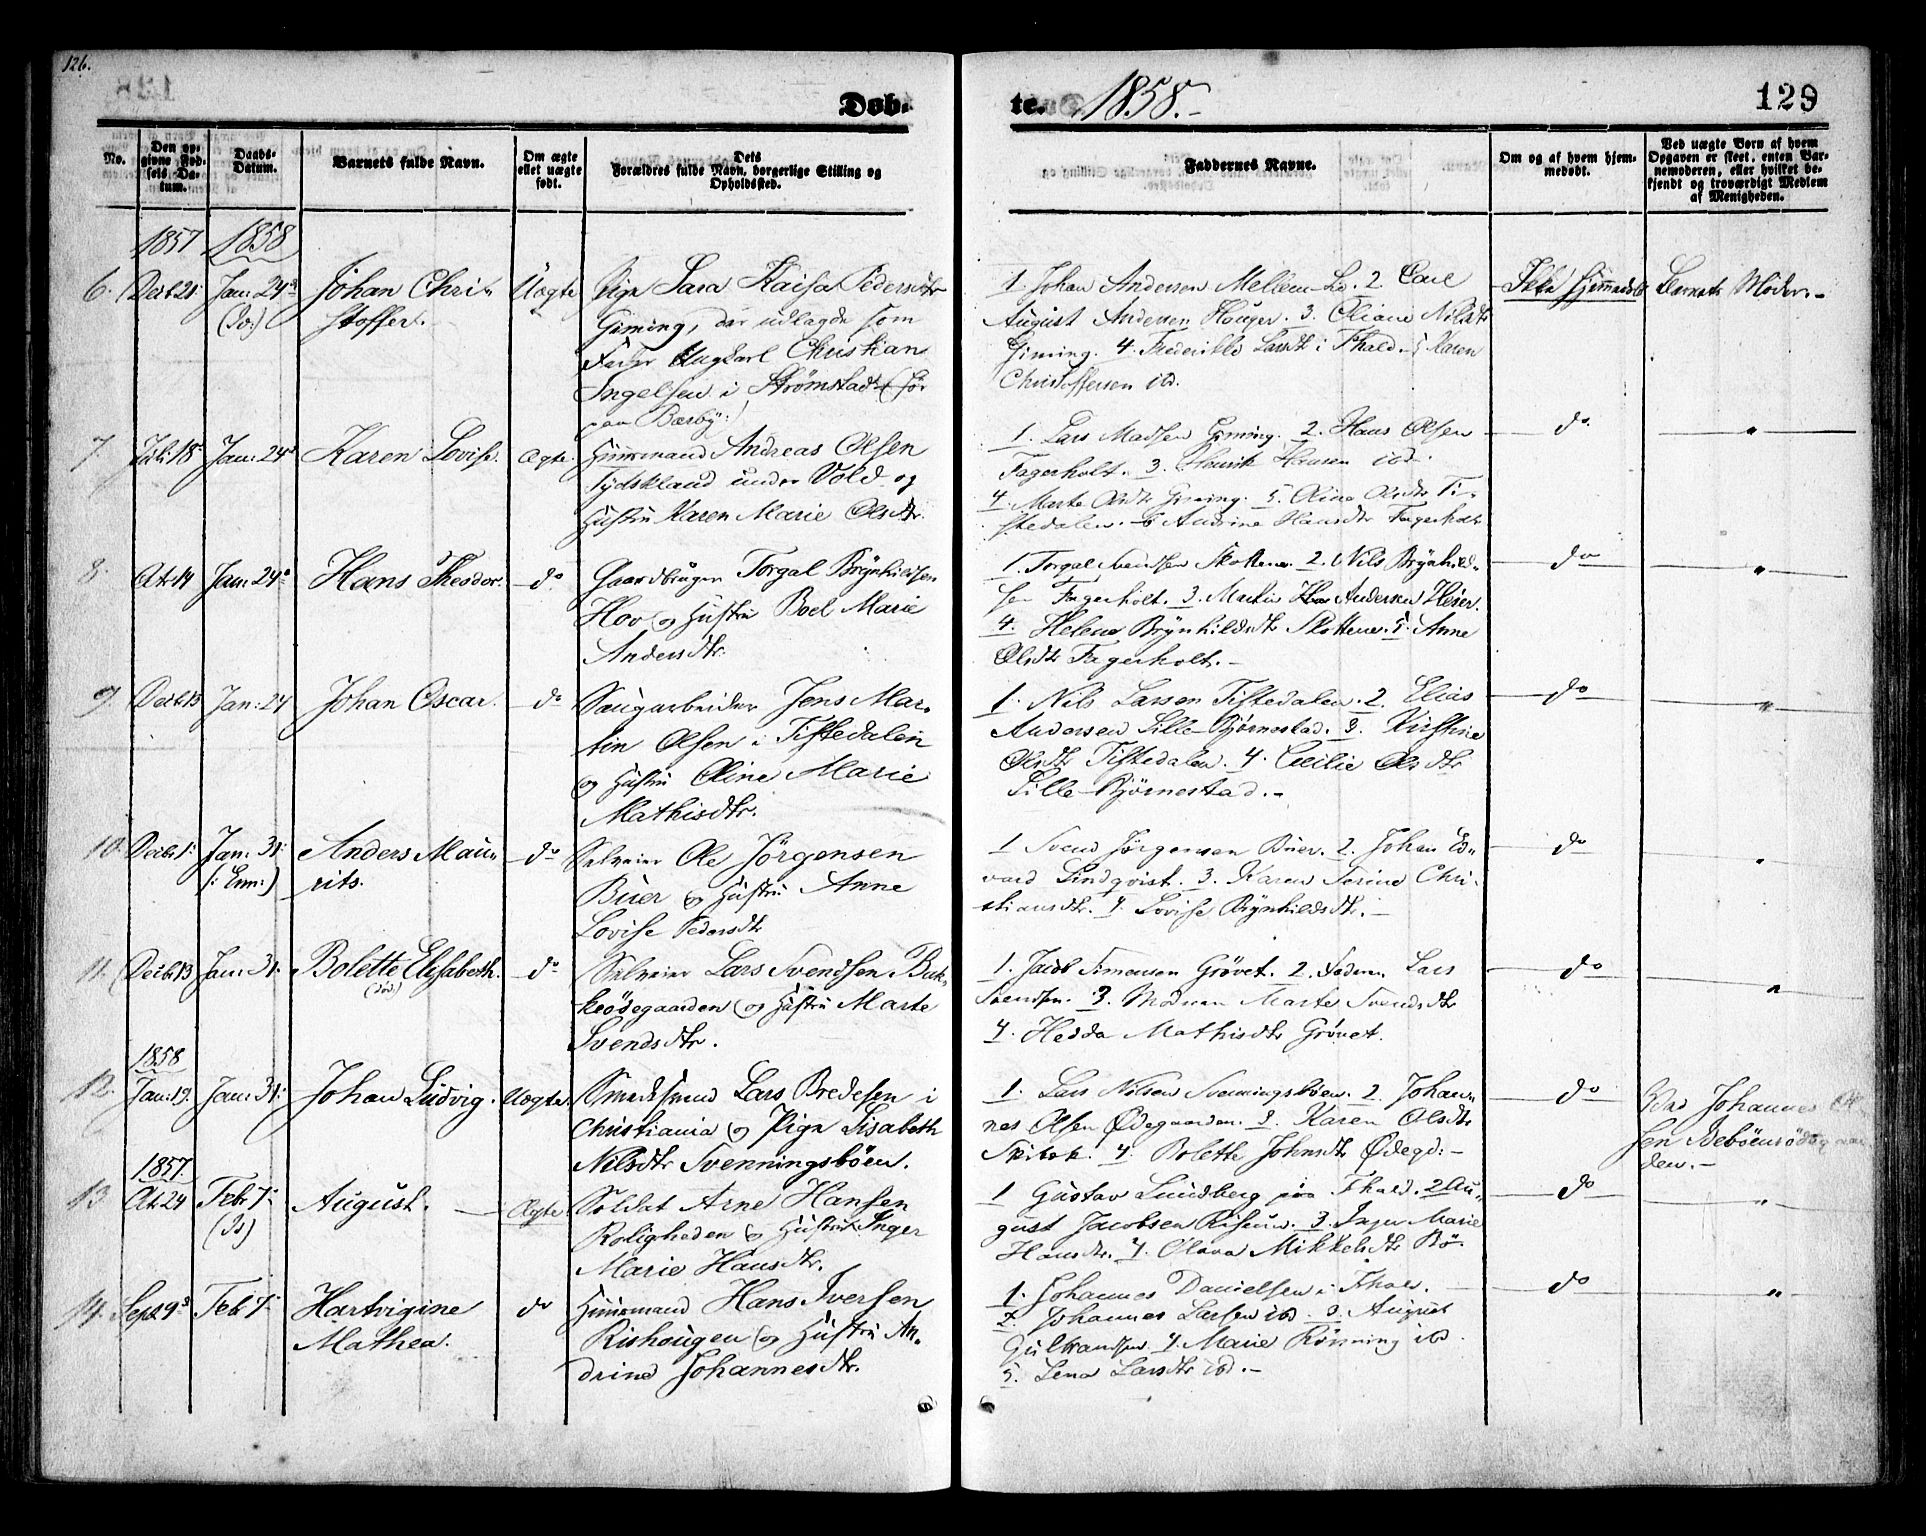 126.
Døb-
te. 1858.-
129
No.
Den op-
givne Fød-
sels Da-
tum.
Daabs-
Datum.
Barnets fulde Navn.
Om ægte
eller uægte
født.
Dets
Forældres fulde Navn, borgerlige Stilling og
Opholdssted.
Faddernes Navne.
Om og af hvem hjem-
medøbt.
Ved uægte Børn af hvem
Opgaven er skeet, enten Bar-
nemoderen, eller hvilket be-
kjendt og troværdigt Medlem
af Menigheden.
1857 1858
6. Decb 21 Jan: 24 Johan Chri-
stoffer.
Uægte Pige Sara Kaisa Pedersdtr
Giming, der udlagde som
Fader Ungkarl Christian
Ingelsen i Strømstad (før
paa Bærby:)
1 Johan Andersen Mellem 2. Carl
August Andersen Houger. 3. Eliane Nilsdtr
Giming. 4. Frederikke Larsdtr i Fhald. 5 Karen
Christoffersen ibd.
Ikke hjemmedøbt Barnets Moder.-
7. Juli 18 Jan: 24 Karen Lovise. Ægte. Huusmand Andreas Olsen
Tydskland under Vold og
Hustru Karen Marie Olsdtr.
1. Lars Madsen Giming. 2. Hans Olsen
Fagerholt. 3. Henrik Hansen ibd.
4. Marte Olsdtr Giming. 5. Oline Olsdtr Ti-
stedalen. 6 Andrine Hansdtr Fagerholt
do "
8. Octr 14 Jan: 24 Hans Theodor. do Gaardbruger Torgal Brynhildsen
Hov og Hustru Boel Marie
Andersdtr.
1. Torgal Svendsen Skottene. 2. Nils Brynhild-
sen Fagerholt. 3. Martin Andersen Heier.
4. Helene Brynhildsdtr Skottene. 5. Anne
Olsdtr Fagerholt.-
do "
9. Decb 13 Jan: 24 Johan Oscar. do Saugarbeider Jens Mar-
tin Olsen i Tistedalen
og Hustru Oline Marie
Mathisdtr.
1. Nils Larsen Tistedalen. 2. Elias
Andersen Lille-Bjørnestad. 3. Kirstine
Olsdtr Tistedalen. 4. Cecilie Olsdtr
Lille-Bjørnestad.-
do "
10. Decbr 1: Jan: 31: Anders Mau-
(: Enn:) rits.
do Selveier Ole Jörgensen
Buer og Hustru Anne
Lovise Pedersdtr
1 Svend Jörgensen Buer. 2. Johan Ed-
vard Lindqvist. 3. Karen Serine Chri-
stiansdtr. 4. Lovise Brynhildsdtr.-
do "
11. Decbr 13 Jan: 31: Bolette Elisabeth.
(død.)
do Selveier Lars Svendsen Buk-
keödegaarden og Hustru Marte
Svendsdtr.
1. Jacob Simensen Grövet. 2. Faderen Lars
Svendsen. 3. Moderen Marte Svendsdtr
4. Hedda Mathisdtr Grövet.
do "
1858
12. Jan: 19. Jan: 31: Johan Ludvig. Uægte. Smedsvend Lars Bredesen i
Christiania og Pige Lisabeth
Nilsdtr Svenningsböen.
1. Lars Nilsen Svenningsböen. 2. Johan-
nes Olsen Ödegaarden. 3. Karen Olsdtr
Skibok. 4. Bolette Johnsdtr Ödegd:-
do Ved Johannes Ol-
sen Bebôensödegaar
den.-
1857.
13 Octr 24 Febr 7: August. Ægte Soldat Arne Hansen
Roligheden og Hustru Inger
Marie Hansdtr.
1 Gustav Lundberg paa Fhald. 2 Au-
gust Jacobsen Risum. 3. Inger Marie
Hansdtr. 4. Olava Mikkelsdtr Bö.
do "
14. Septb 9 Febr 7: Hartvigine
Mathea.
do Huusmand Hans Iversen
Rishougen og Hustru An-
drine Johannesdtr.
1. Johannes Danielsen i Fhald.
2. Johannes Larsen ibd 3. August
Gulbrandsen 4. Marie Rönning ibd.
5. Lena Larsdtr ibd.-
do "